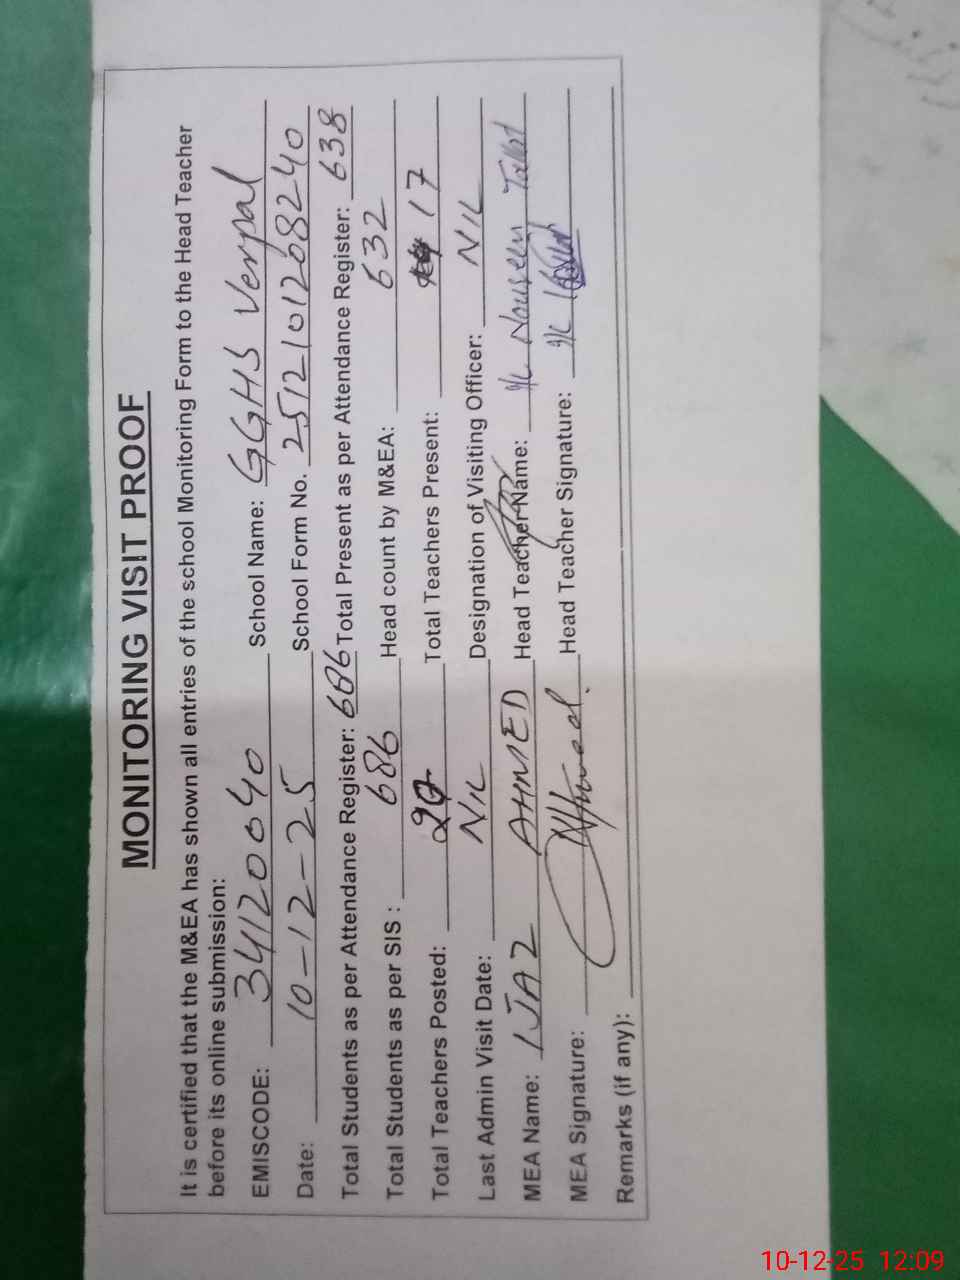 MONITORING VISIT PROOF
It is certified that the M&EA has shown all entries of the school Monitoring Form to the Head Teacher
before its online submission:
EMISCODE: 34120040 School Name: GGHS Verpal
Date: 10-12-25 School Form No. 2512101208240
Total Students as per Attendance Register: 686 Total Present as per Attendance Register: 638
Total Students as per SIS : 686 Head count by M&EA: 632
Total Teachers Posted: 20 Total Teachers Present: 17
Last Admin Visit Date: NIL Designation of Visiting Officer: NIL
MEA Name: IJAZ AHMED Head Teacher Name: I/C Nouseen
MEA Signature: Head Teacher Signature: I/C
Remarks (if any):
10-12-25 12:09